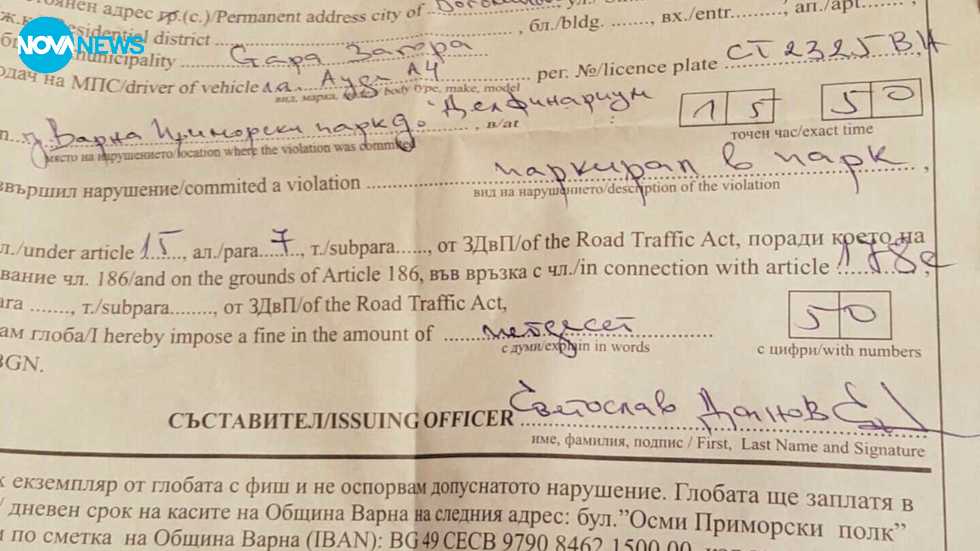 NOVA NEWS
оянен адрес гр.(с.)/Permanent address city of
ж.к./residential district , бл./bldg. , вх./entr. , ап./apt
municipality Стара Загора
одач на МПС/driver of vehicle л.а. Ауди А4 рег. №/licence plate СТ 2325 ВН
вид, марка, body type, make, model
гр. Варна Приморски парк до "Делфинариум , в/at 15 50
място на нарушението/location where the violation was commited точен час/exact time
звършил нарушение/commited a violation паркирал в парк ,
вид на нарушението/description of the violation
л./under article 15, ал./para. 7, т./subpara......, от ЗДвП/of the Road Traffic Act, поради което на
вание чл. 186/and on the grounds of Article 186, във връзка с чл./in connection with article 178е,
ara ........, т./subpara........., от ЗДвП/of the Road Traffic Act,
ам глоба/I hereby impose a fine in the amount of петдесет 50
с думи/explain in words с цифри/with numbers
BGN.
СЪСТАВИТЕЛ/ISSUING OFFICER Светослав Даинов
име, фамилия, подпис / First, Last Name and Signature
к екземпляр от глобата с фиш и не оспорвам допуснатото нарушение. Глобата ще заплатя в
дневен срок на касите на Община Варна на следния адрес: бул."Осми Приморски полк"
и по сметка на Община Варна (IBAN): BG 49 CECB 9790 8462 1500 00